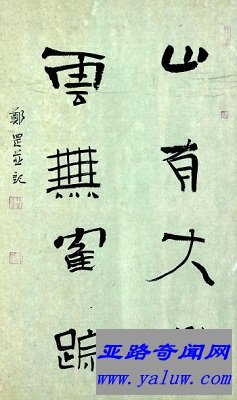 山有大
雲無寉踪
鄭罡並記
亚路奇闻网
www.yaluw.com